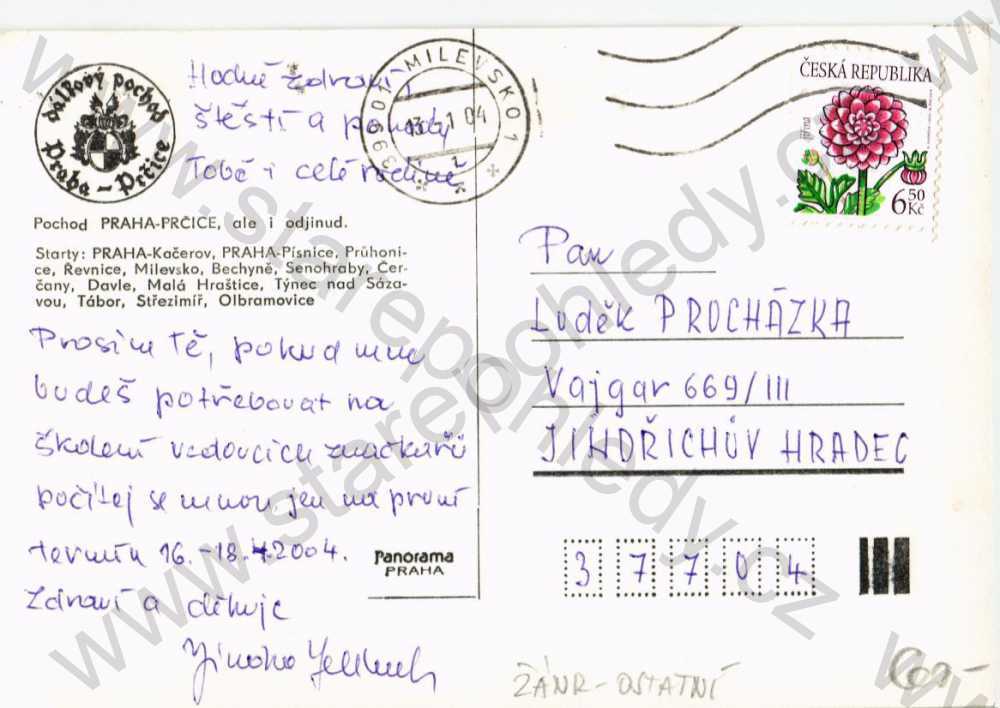 Dálkový pochod
Praha – Prčice
Hodně zdraví
štěstí a pohody
Tobě i celé rodině
MILEVSKO 1
399 01
13.-1 04
2
ČESKÁ REPUBLIKA
Jiřina
6 50 Kč
Pochod PRAHA-PRČICE, ale i odjinud.
Starty: PRAHA-Kačerov, PRAHA-Písnice, Průhoni-
ce, Řevnice, Milevsko, Bechyně, Senohraby, Čer-
čany, Davle, Malá Hraštice, Týnec nad Sáza-
vou, Tábor, Střezimíř, Olbramovice
Prosím tě, pokud mne
budeš potřebovat na
školení vedoucích značkařů
počítej se mnou jen na první
termín 16.-18.4.2004.
Zdraví a děkuje
Pan
Luděk PROCHÁZKA
Vajgar 669/III
JINDŘICHŮV HRADEC
Panorama
PRAHA
3 7 7 0 4
ŽÁNR - OSTATNÍ
www.starepohledy.cz